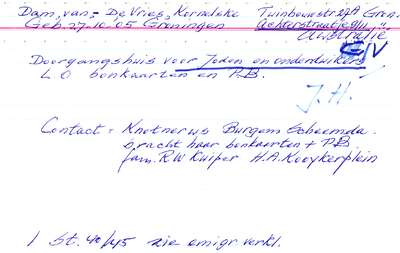 Dam, van,- De Vries, Kornelske Tuinbouwstr 27A Gron.
Geb 27-10-05 Groningen
Australië
C/IV
Doorgangshuis voor Joden en onderduikers
L.O bonkaarten en P.B.
J.H.
Contact = Knotnerus Burgem Scheemda.
bracht haar bonkaarten + P.B.
fam. R.W Kuiper H.A. Kooykerplein
1 St. 40/45 zie emigr. verkl.